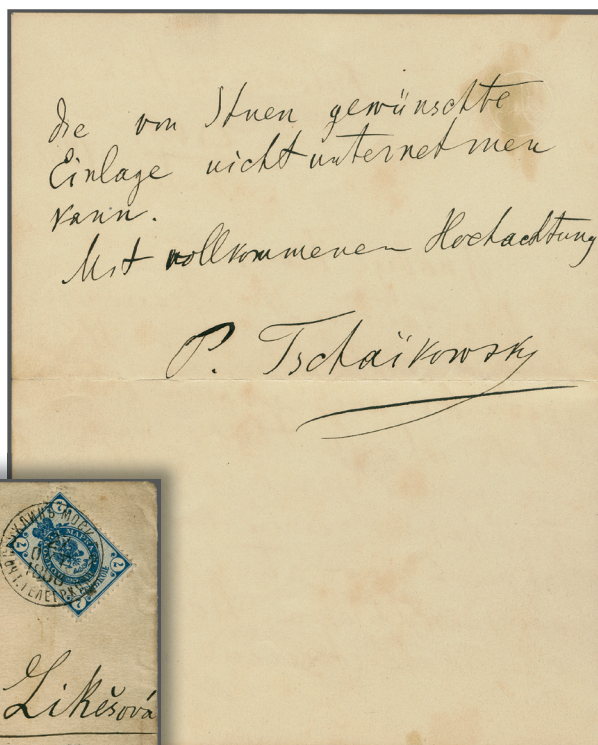 die von Ihnen gewünschte
Einlage nicht unternehmen
kann.
Mit vollkommenen Hochachtung
P. Tschaïkowsky
7
7
7
7
Likešová